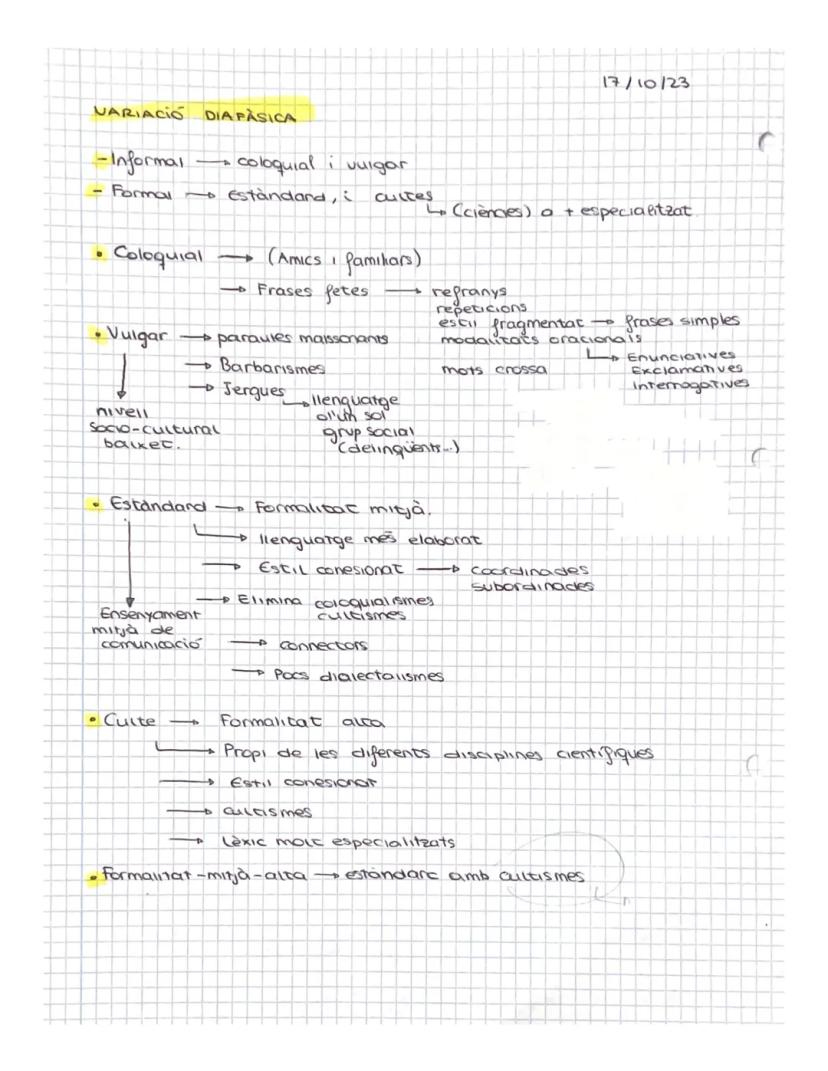 17/10/23
VARIACIÓ DIAFÀSICA
- Informal → coloquial i vulgar
- Formal → estàndard, i cultes
↳ (ciències) o + especialitzat
• Coloquial → (Amics i familiars)
→ Frases fetes → refranys
repeticions
estil fragmentat → frases simples
• Vulgar → paraules malssonants modalitats oracionals
→ Barbarismes mots crossa ↳ Enunciatives
Exclamatives
→ Jergues Interrogatives
↳ llenguatge
d'un sol
grup social
(delinqüents...)
nivell
socio-cultural
baixet.
• Estàndard → Formalitat mitjà.
↳ llenguatge més elaborat
→ Estil conesionat → coordinades
subordinades
→ Elimina coloquialismes
cultismes
Ensenyament
mitjà de
comunicació → connectors
→ Pocs dialectalismes
• Culte → Formalitat alta
↳ Propi de les diferents disciplines científiques
→ Estil conesionat
→ cultismes
→ Lèxic molt especialitzats
• Formalitat-mitjà-alta → estàndarc amb cultismes